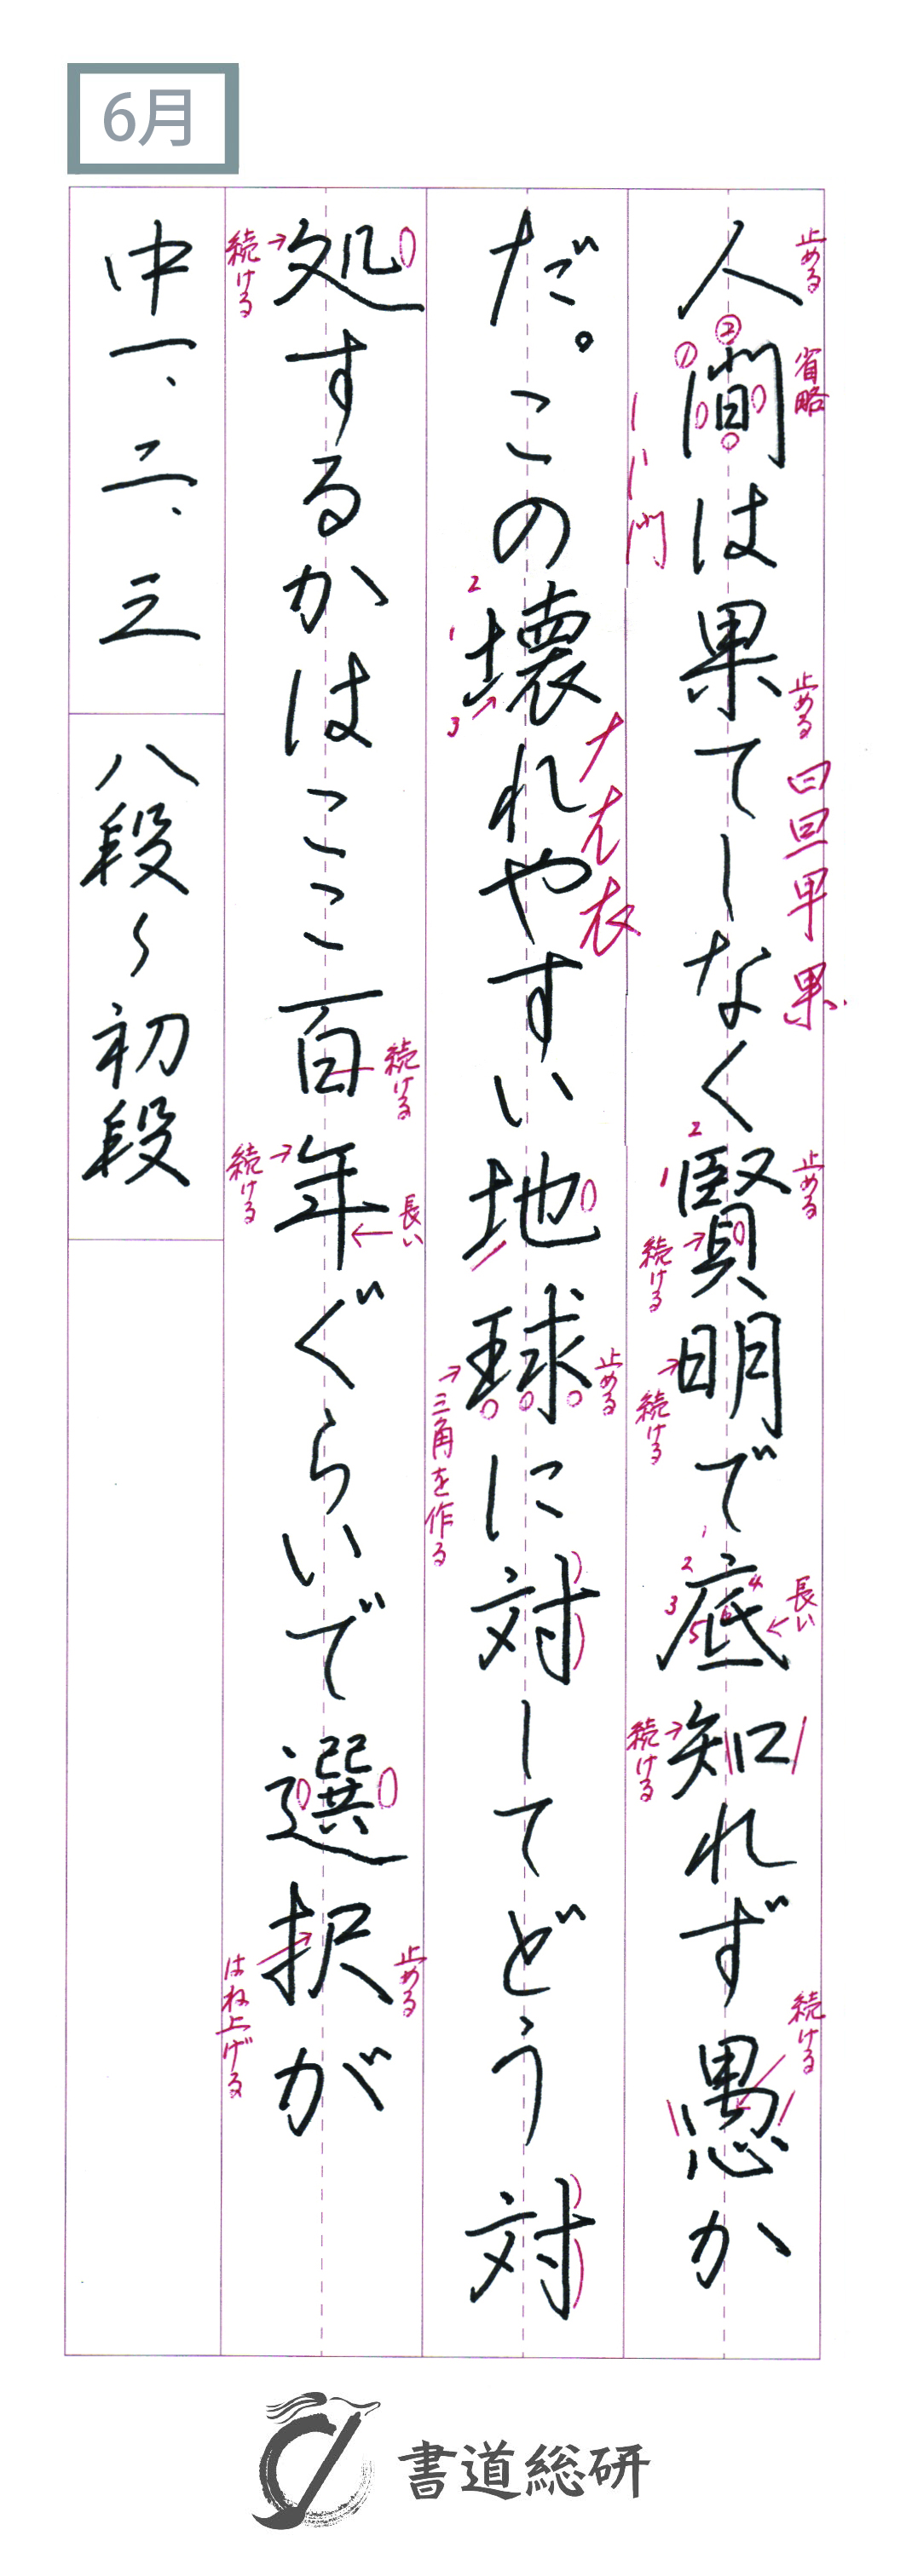 6月
人間は果てしなく賢明で底知れず愚か
だ。この壊れやすい地球に対してどう対
処するかはここ百年ぐらいで選択が
中一、二、三
八段〜初段
止める
省略
① ②
止める
曰 旦 甲 果
1 2
止める
続ける
続ける
1 2 3 4 5 6
長い
続ける
続ける
1 2 3
ナ 衣
止める
三角を作る
続ける
続ける
続ける
長い
止める
はね上げる
書道総研